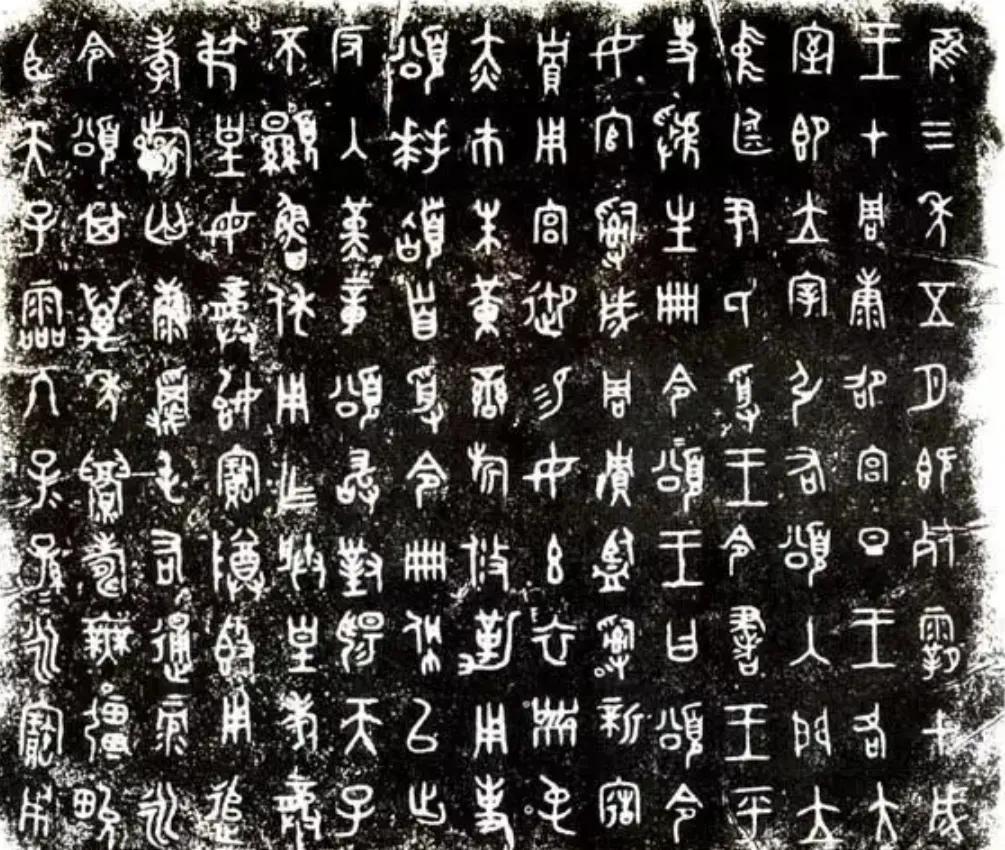 隹三年五月既死霸甲戌
王才周康卲宮旦王各大
室即立宰引右頌入門立
中廷尹氏受王令書王乎
史虢生冊令頌王曰頌令
女官𤔲成周貯監𤔲新造
貯用宮御易女玄衣黹屯
赤巿朱黃䜌旂攸勒用事
頌拜𩒨首受令冊佩以出
反入堇章頌敢對揚天子
不顯魯休用乍朕皇考龔
弔皇母龔始寶尊鼎用追
孝祈匄康𩃬屯右通彔永
令頌其萬年眉壽無疆畯
臣天子霝冬子孫永寶用